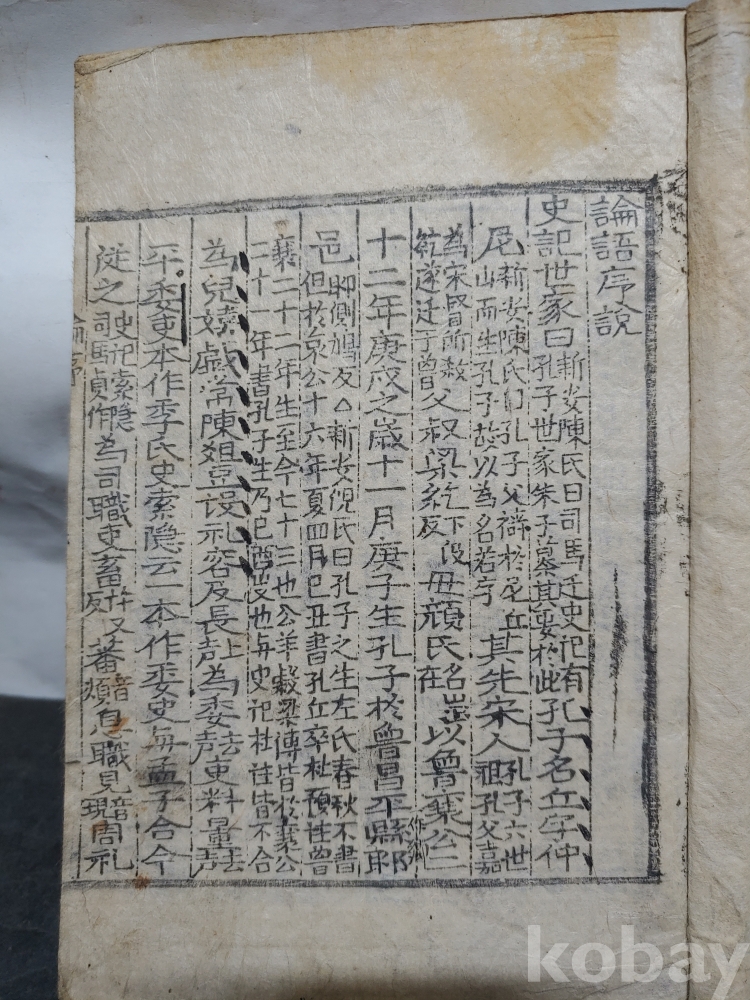 論語序說
史記世家曰新安陳氏曰司馬迁史記有孔子世家朱子纂其要於此孔子名丘字仲
尼新安陳氏曰孔子父禱於尼丘山而生孔子故以為名若字其先宋人孔子六世祖孔父嘉
為宋督所殺乾遂迁于魯父叔梁紇下没反母顔氏名徵在以魯襄公二
十二年庚戌之歲十一月庚子生孔子於魯昌平縣郰
作鄹
邑郰側鳩反△新安倪氏曰孔子之生左氏春秋不書但於哀公十六年夏四月己丑書孔丘卒杜預註曾
襄二十二年生至今七十三也公羊穀梁傳皆於襄公二十一年書孔子生乃巳也与史記杜註皆不合
為兒嬉戱常陳俎豆設礼容及長去声為委去声吏料量去声
平委吏本作季氏史索隐云一本作委史与孟子合今
従之史記索隐司馬貞作為司職吏畜許又反蕃音煩息職見周礼
論序
kobay